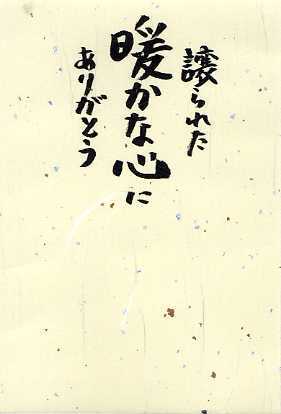 譲られた
暖かな心に
ありがとう